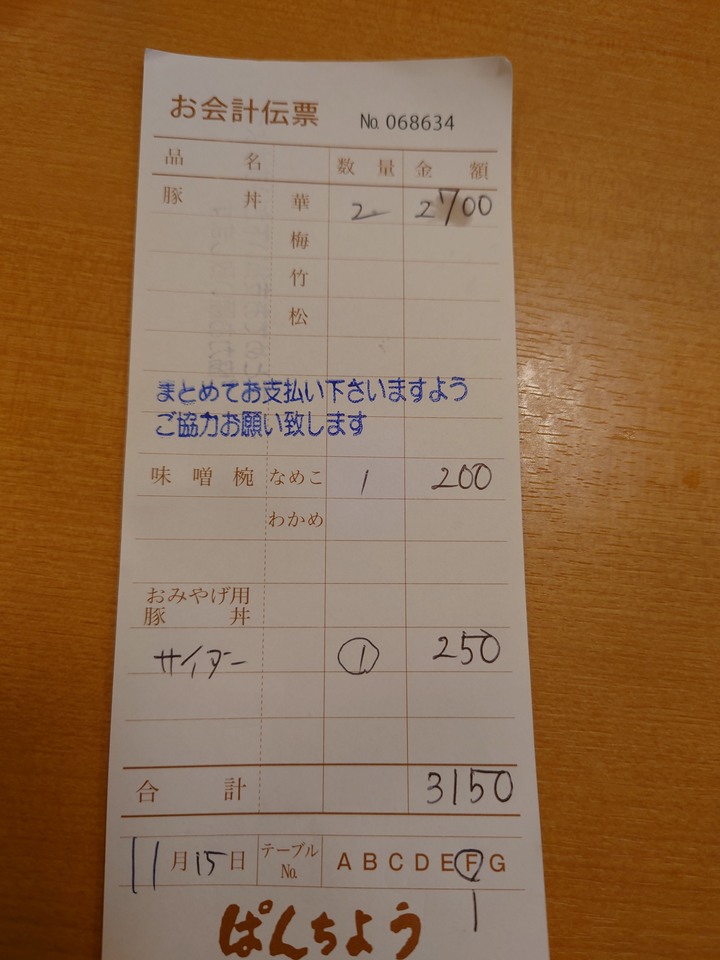 お会計伝票 № 068634
品名 数量 金額
豚丼 華 2 2700
梅
竹
松
まとめてお支払い下さいますよう
ご協力お願い致します
味噌椀 なめこ 1 200
わかめ
おみやげ用
豚丼
サイダー 1 250
合計 3150
11月15日 テーブル№ A B C D E F G
1
ぱんちょう